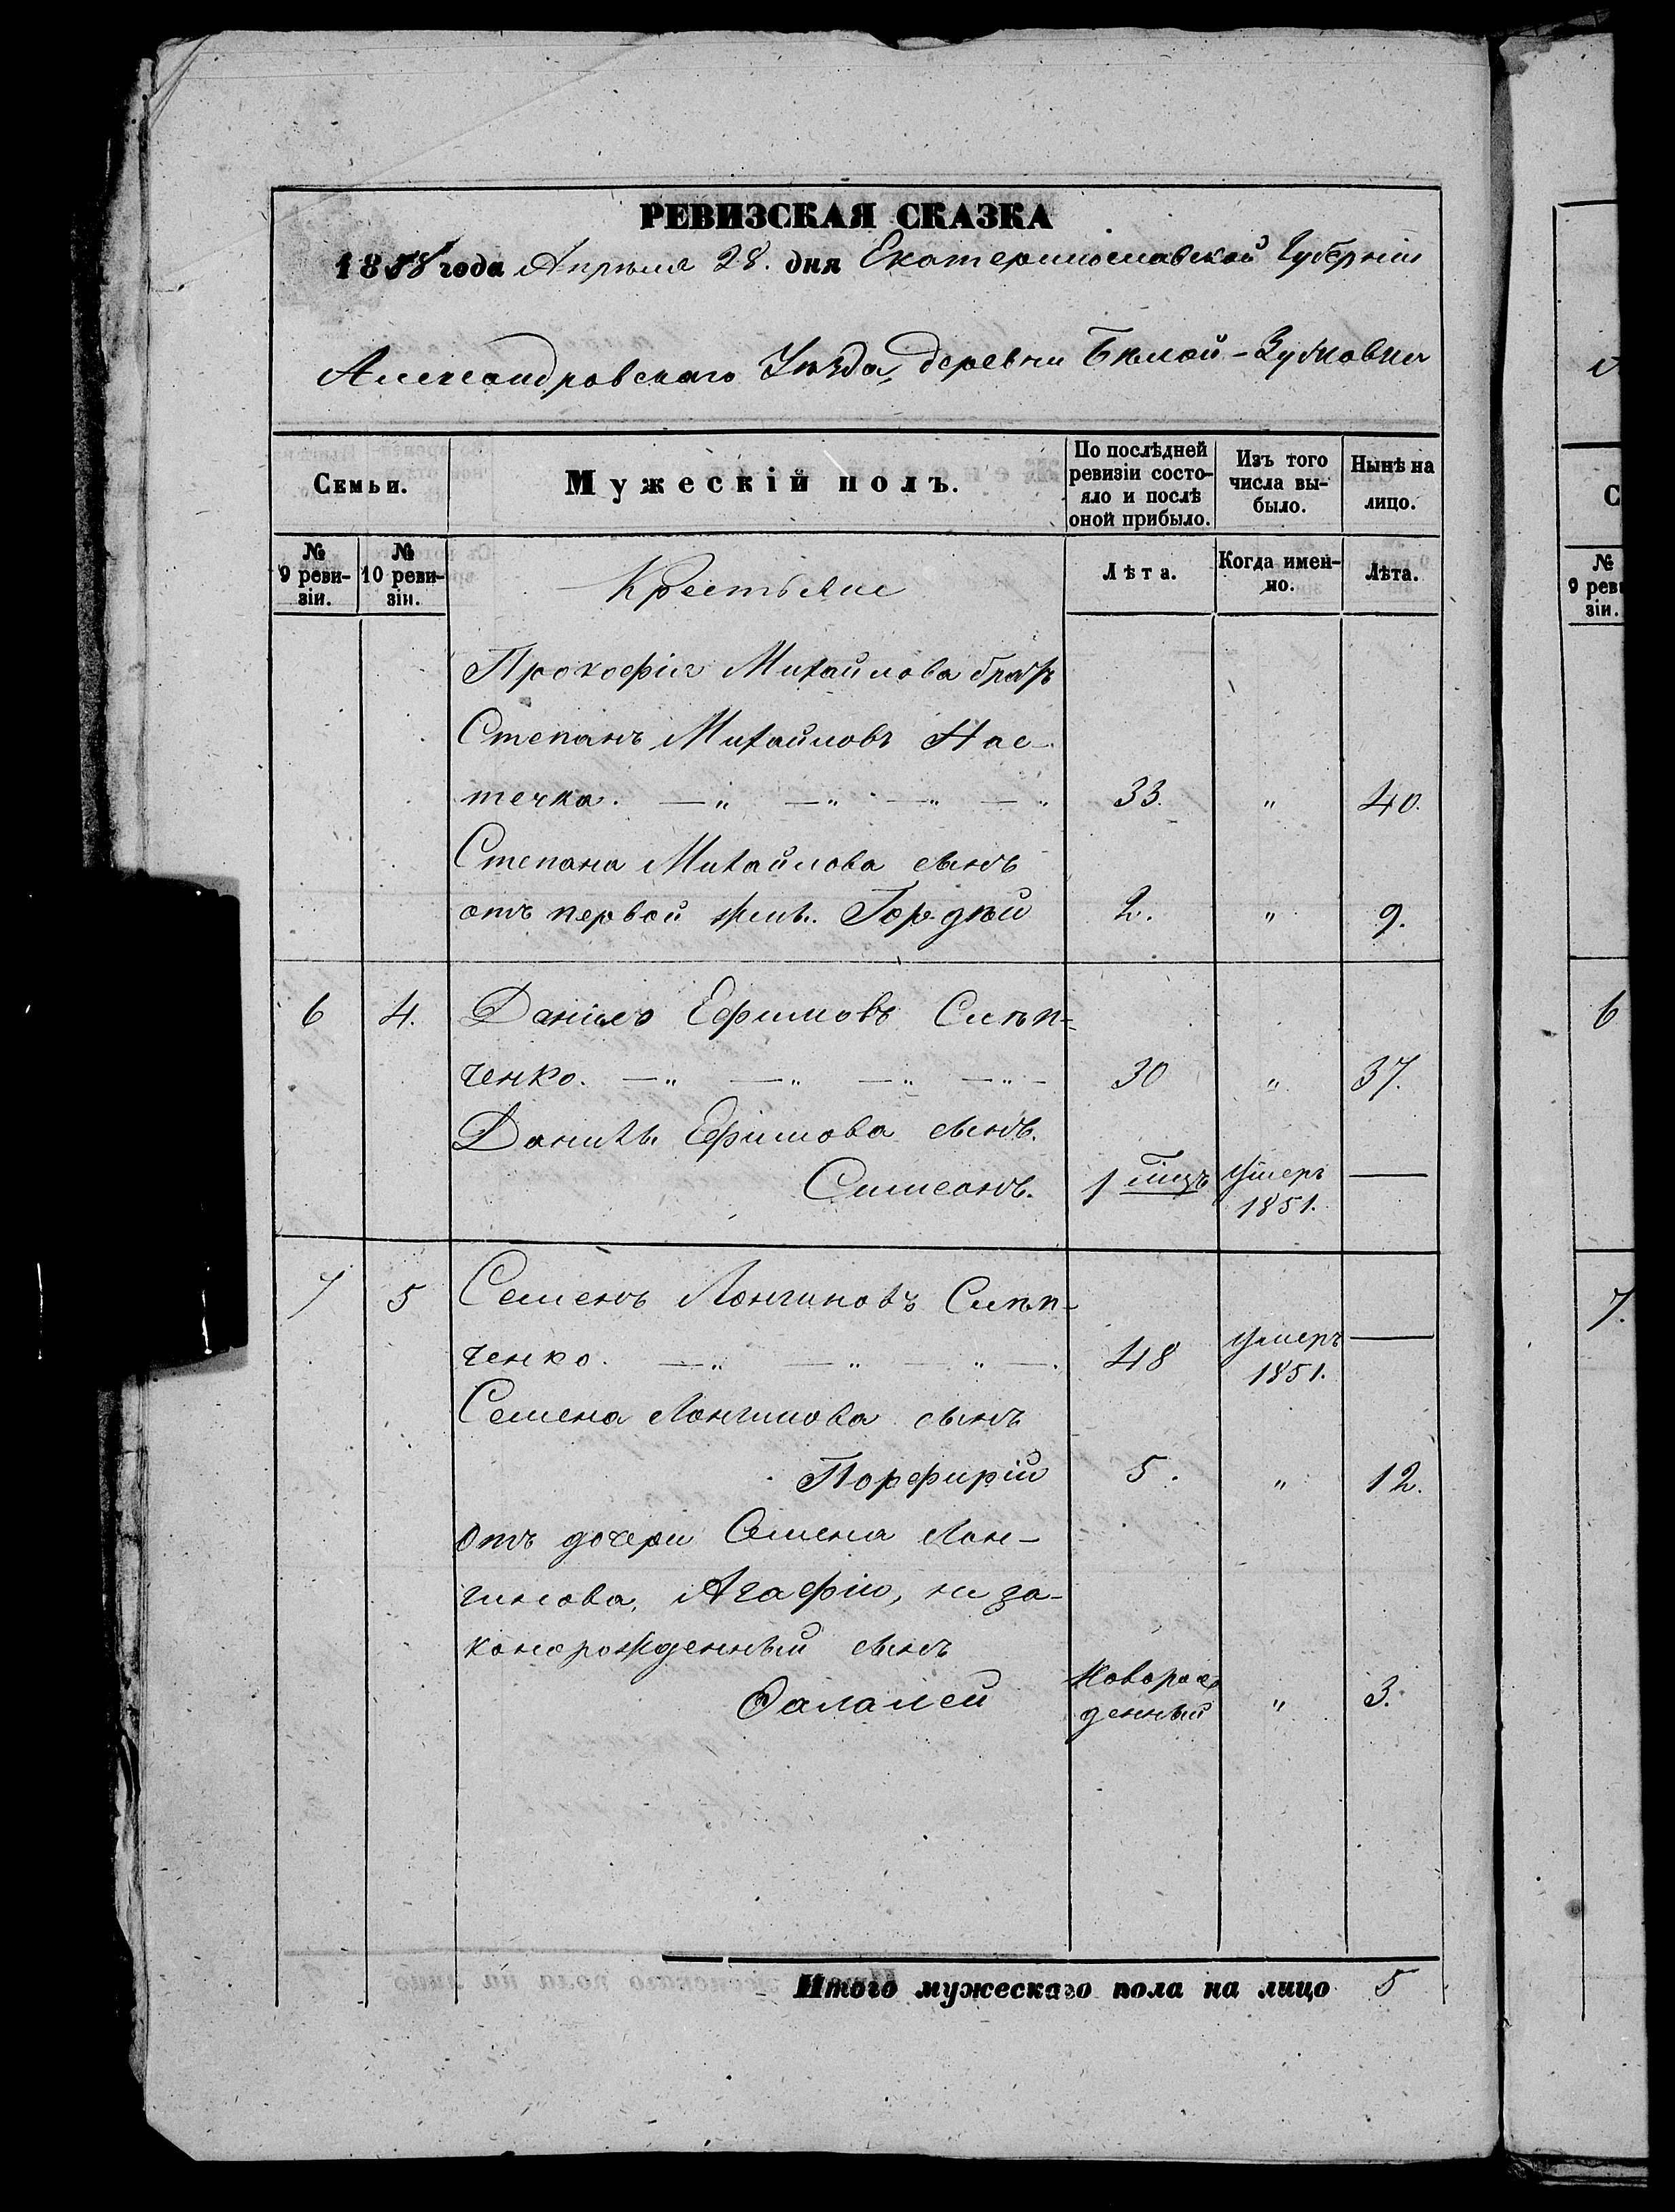 РЕВИЗСКАЯ СКАЗКА
1858 года Апрѣля 28. дня Екатеринославской Губерніи
Александровскаго Уѣзда, деревни Бѣлой-Зубковки
Семьи.
Мужескій полъ.
По послѣдней ревизіи состояло и послѣ оной прибыло.
Изъ того числа выбыло.
Нынѣ на лицо.
№ 9 ревизіи.
№ 10 ревизіи.
Крестьяне
Лѣта.
Когда именно.
Лѣта.
Прокофія Михайлова братъ
Степанъ Михайловъ Нас-
течка. —„ —„ —„ —„ 33. „ 40.
Степана Михайлова сынъ
отъ первой жены. Гордѣй 2. „ 9.
6 4. Данило Ефимовъ Слѣп-
ченко. —„ —„ —„ —„— 30 „ 37.
Данилы Ефимова сынъ.
Симеонъ. 1 мцъ умеръ 1851. —
7 5 Семенъ Лонгиновъ Слѣп-
ченко. —„ —„ —„ —. 48 умеръ 1851. —
Семена Лонгинова сынъ
Порфирій 5. „ 12.
Отъ дочери Семена Лон-
гинова, Агафіи, неза-
конорожденный сынъ
Фалалей Новорожденный „ 3.
Итого мужескаго пола на лицо 5
С
№
9 реви
зіи.
6
7.